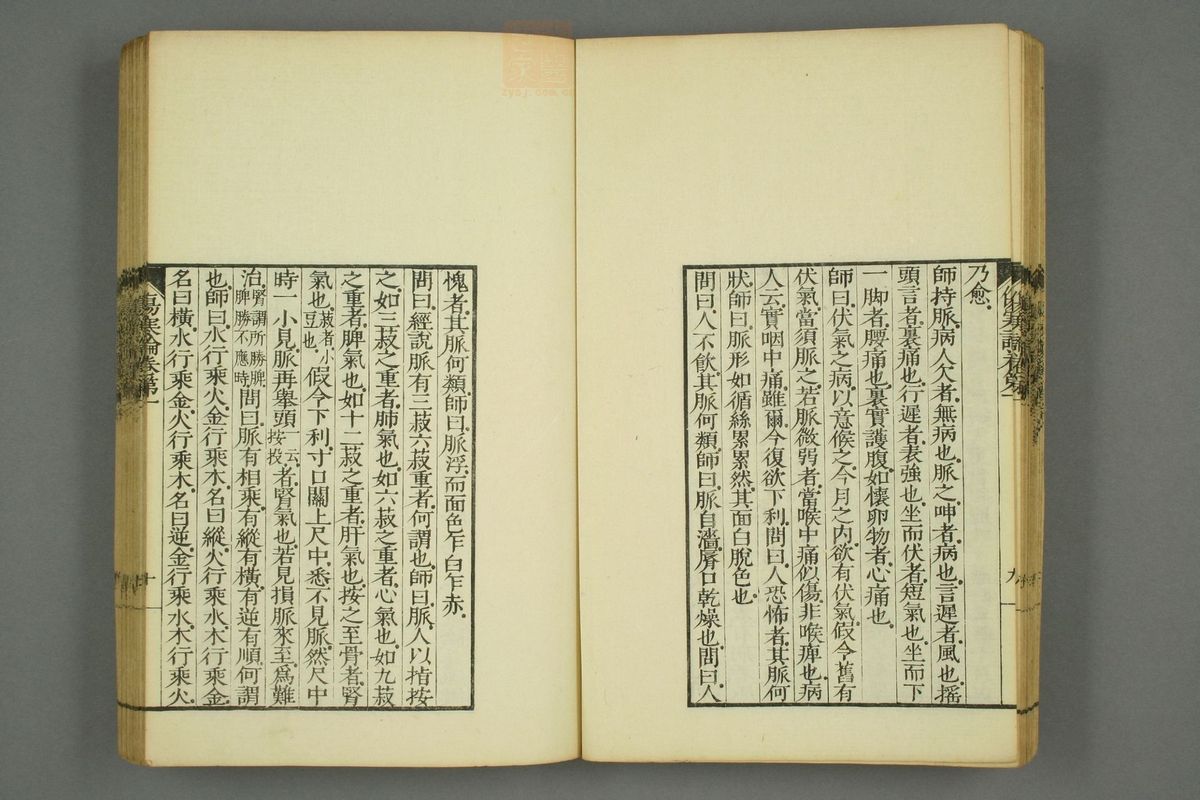 乃愈。
師持脈。病人欠者。無病也。脈之。呻者。病也。言遲者。風也。搖
頭言者。裏痛也。行遲者。表強也。坐而伏者。短氣也。坐而下
一脚者。腰痛也。裏實護腹。如懷卵物者。心痛也。
師曰。伏氣之病。以意候之。今月之內。欲有伏氣。假令舊有
伏氣。當須脈之。若脈微弱者。當喉中痛似傷。非喉痹也。病
人云。實咽中痛。雖爾。今復欲下利。問曰。人恐怖者。其脈何
狀。師曰。脈形如循絲累累然。其面白脫色也。
問曰。人不飲。其脈何類。師曰。脈自濇。脣口乾燥也。問曰。人
九
愧者。其脈何類。師曰。脈浮。而面色乍白乍赤。
問曰。經說脈有三菽六菽重者。何謂也。師曰。脈。人以指按
之。如三菽之重者。肺氣也。如六菽之重者。心氣也。如九菽
之重者。脾氣也。如十二菽之重者。肝氣也。按之至骨者。腎
氣也。菽者。小豆也。假令下利。寸口關上尺中。悉不見脈。然尺中
時一小見。脈再舉頭一云按投。者。腎氣也。若見損脈來至。爲難
治。腎謂所勝脾。脾勝不應時。問曰。脈有相乘。有縱有橫。有逆有順。何謂
也。師曰。水行乘火。金行乘木。名曰縱。火行乘水。木行乘金。
名曰橫。水行乘金。火行乘木。名曰逆。金行乘水。木行乘火。
傷寒論卷第一
十
zysj.com.cn